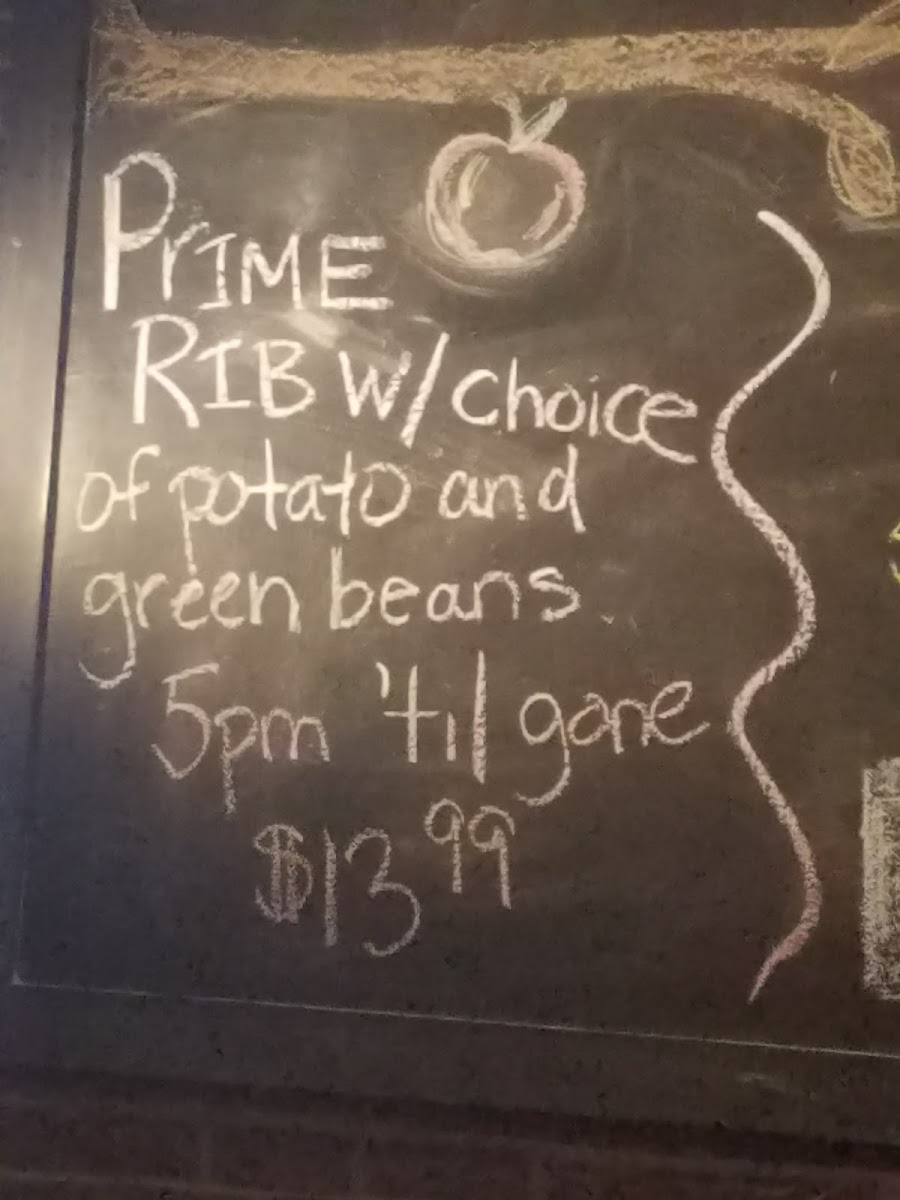 PrIME
RIB W/ choice
of potato and
green beans
5pm 'til gone
$13 99